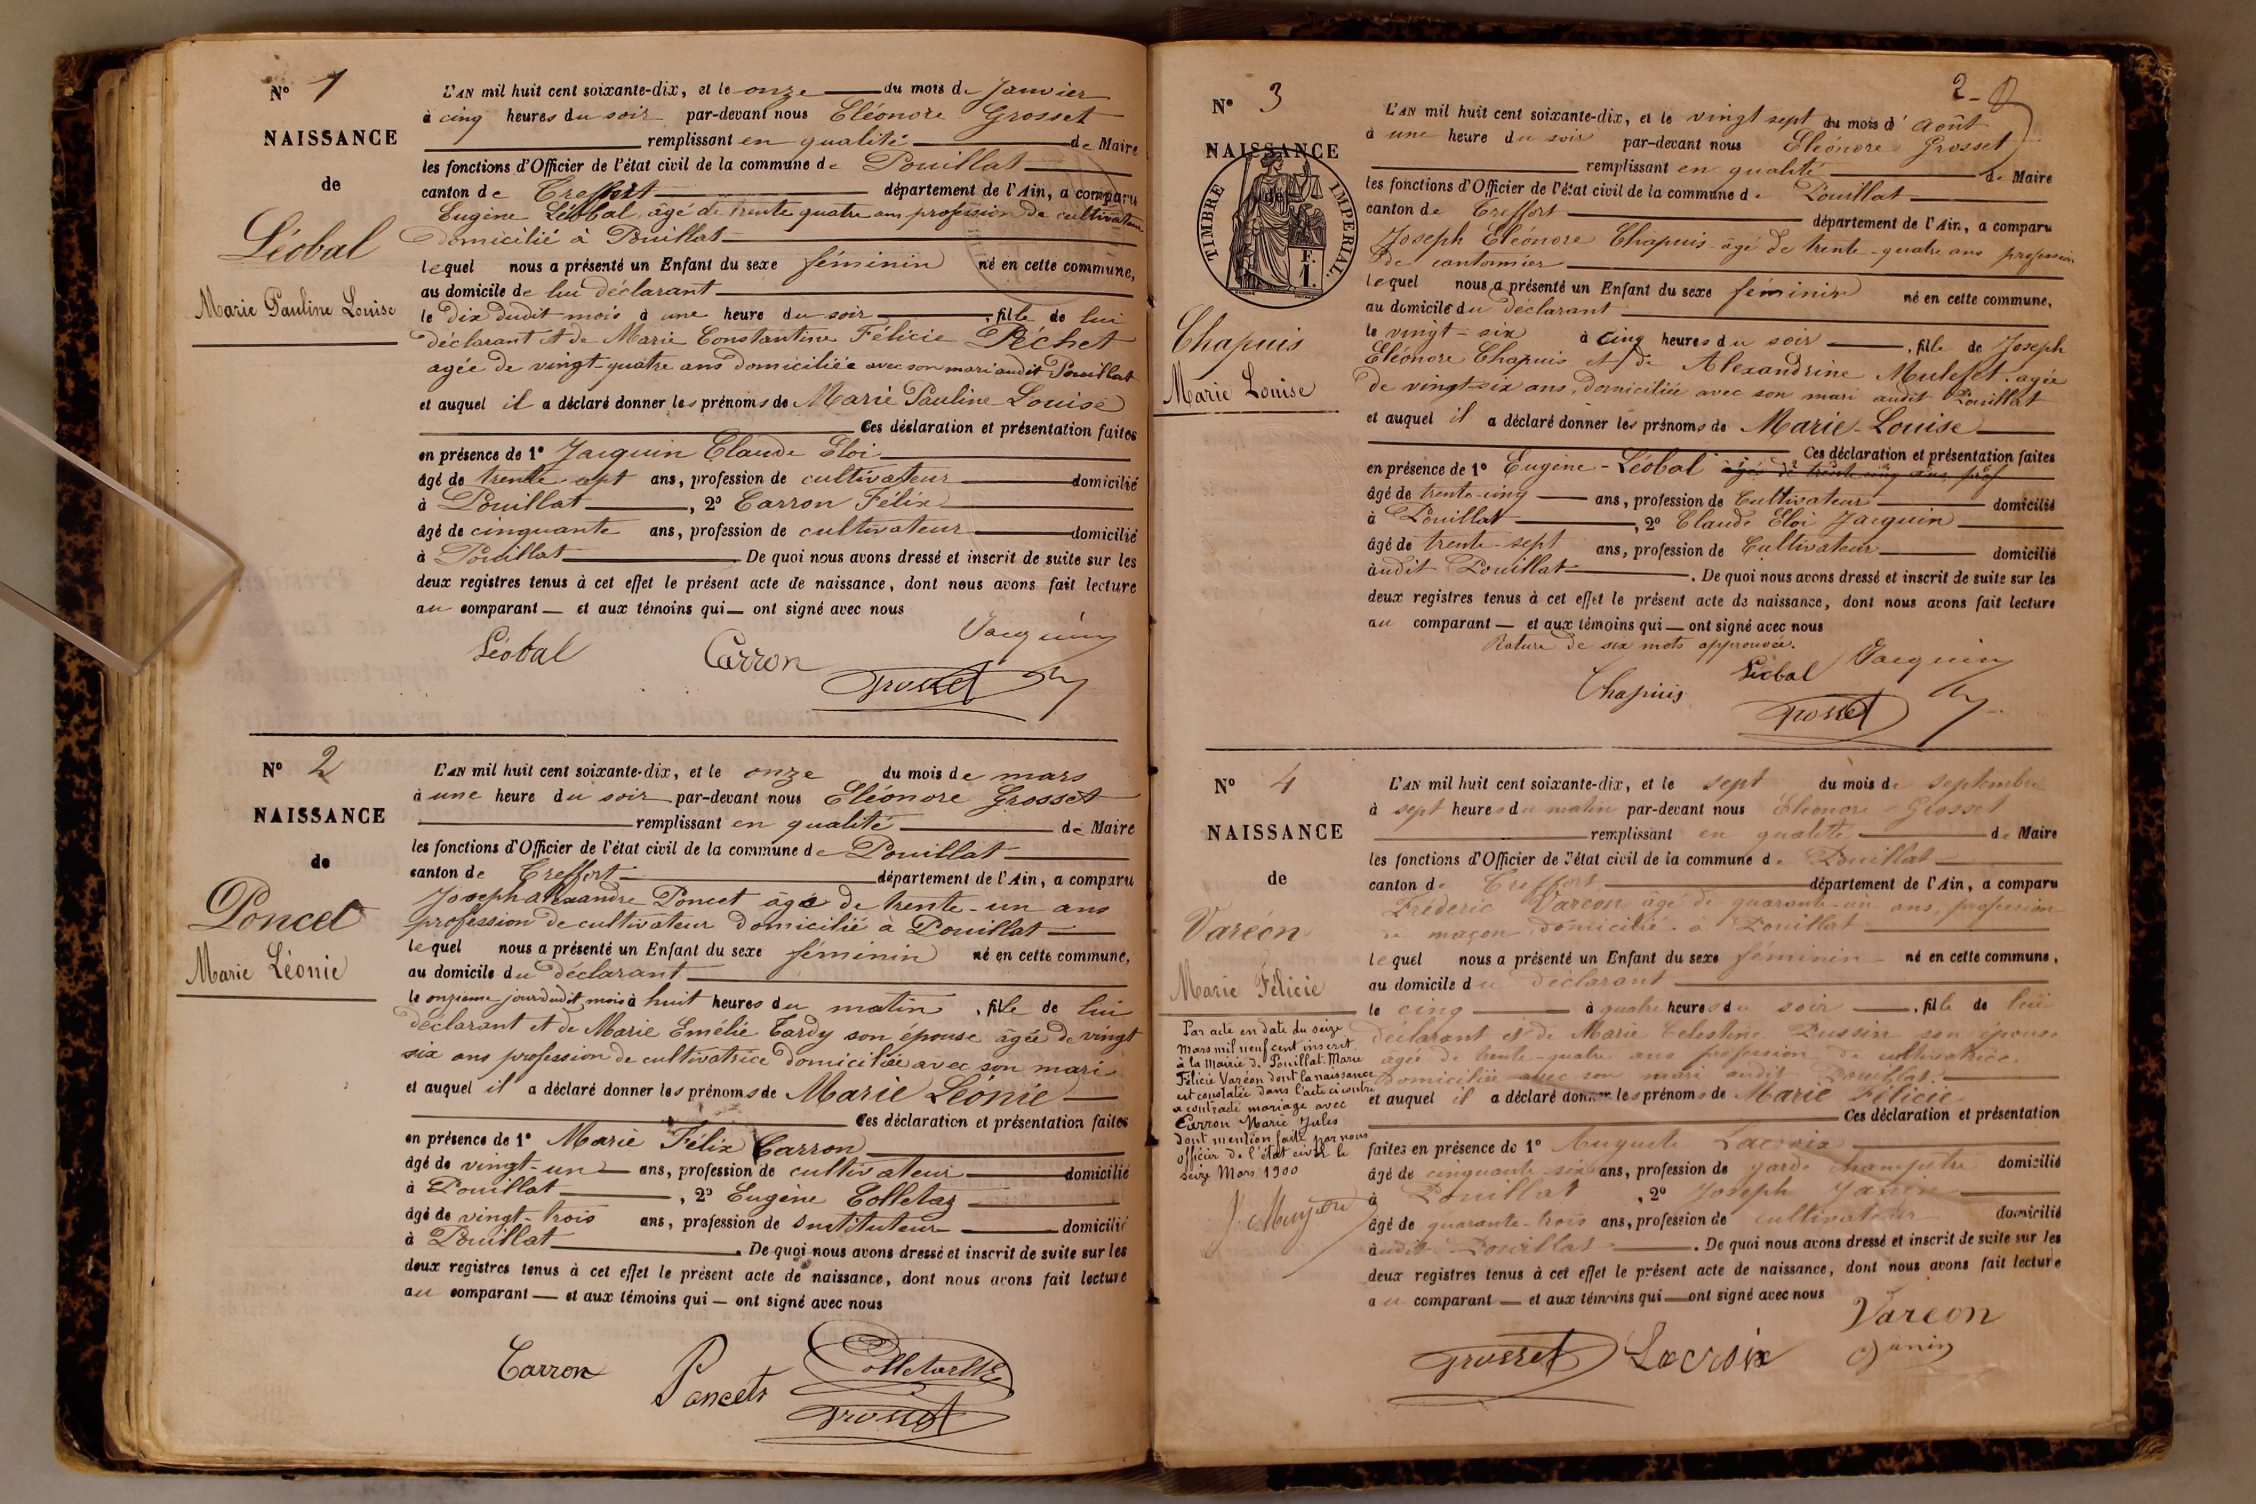 N° 1
NAISSANCE
de
Léobal
Marie Pauline Louise
L'AN mil huit cent soixante-dix, et le onze du mois de Janvier
à cinq heures du soir par-devant nous Eléonore Grosset
remplissant en qualité de Maire
les fonctions d'Officier de l'état civil de la commune de Pouillat
canton de Treffort département de l'Ain, a comparu
Eugène Léobal, âgé de trente quatre ans profession de cultivateur
domicilié à Pouillat
lequel nous a présenté un Enfant du sexe féminin né en cette commune,
au domicile de lui déclarant
le dix dudit mois à une heure du soir, fille de lui
déclarant et de Marie Constantine Félicie Péchet
agée de vingt-quatre ans domiciliée avec son mari audit Pouillat
et auquel il a déclaré donner les prénoms de Marie Pauline Louise
Ces déclaration et présentation faites
en présence de 1° Jacquin Claude Eloi
âgé de trente-sept ans, profession de cultivateur domicilié
à Pouillat, 2° Carron Félix
âgé de cinquante ans, profession de cultivateur domicilié
à Pouillat De quoi nous avons dressé et inscrit de suite sur les
deux registres tenus à cet effet le présent acte de naissance, dont nous avons fait lecture
au comparant et aux témoins qui ont signé avec nous
Jacquin
Léobal Carron
Grosset
N° 2
NAISSANCE
de
Poncet
Marie Léonie
L'AN mil huit cent soixante-dix, et le onze du mois de mars
à une heure du soir par-devant nous Eléonore Grosset
remplissant en qualité de Maire
les fonctions d'Officier de l'état civil de la commune de Pouillat
canton de Treffort département de l'Ain, a comparu
Joseph alexandre Poncet âgé de trente-un ans
profession de cultivateur domicilié à Pouillat
lequel nous a présenté un Enfant du sexe féminin né en cette commune,
au domicile du déclarant
le onzieme jour dudit mois à huit heures du matin, fille de lui
déclarant et de Marie Emélie Tardy son épouse âgée de vingt
six ans profession de cultivatrice domiciliée avec son mari
et auquel il a déclaré donner les prénoms de Marie Léonie
Ces déclaration et présentation faites
en présence de 1° Marie Félix Carron
âgé de vingt-un ans, profession de cultivateur domicilié
à Pouillat, 2° Eugène Colletaz
âgé de vingt-trois ans, profession de Instituteur domicilié
à Pouillat. De quoi nous avons dressé et inscrit de suite sur les
deux registres tenus à cet effet le présent acte de naissance, dont nous avons fait lecture
au comparant et aux témoins qui ont signé avec nous
Carron Poncet
Grosset
2
N° 3
NAISSANCE
de
TIMBRE IMPERIAL.
F.
1.
Chapuis
Marie Louise
L'AN mil huit cent soixante-dix, et le vingt sept du mois d'Août
à une heure du soir par-devant nous Eléonore Grosset
remplissant en qualité de Maire
les fonctions d'Officier de l'état civil de la commune de Pouillat
canton de Treffort département de l'Ain, a comparu
Joseph Eléonore Chapuis âgé de trente-quatre ans profession
de cantonnier
lequel nous a présenté un Enfant du sexe féminin né en cette commune,
au domicile du déclarant
le vingt-six à cinq heures du soir, fille de Joseph
Eléonore Chapuis et de Alexandrine Mulefet, agée
de vingt-six ans, domiciliée avec son mari audit Pouillat
et auquel il a déclaré donner les prénoms de Marie-Louise
Ces déclaration et présentation faites
en présence de 1° Eugène-Léobal âgé de trente cinq ans prof
âgé de trente-cinq ans, profession de Cultivateur domicilié
à Pouillat, 2° Claude Eloi Jacquin
âgé de trente-sept ans, profession de Cultivateur domicilié
audit Pouillat. De quoi nous avons dressé et inscrit de suite sur les
deux registres tenus à cet effet le présent acte de naissance, dont nous avons fait lecture
au comparant et aux témoins qui ont signé avec nous
Rature de six mots approuvée.
Chapuis Léobal Jacquin
Grosset
N° 4
NAISSANCE
de
Varéon
Marie Félicie
Par acte en date du seize
Mars mil neuf cent inscrit
à la Mairie de Pouillat Marie
Félicie Varéon dont la naissance
est constatée dans l'acte ci contre
a contracté mariage avec
Carron Marie Jules
dont mention faite par nous
officier de l'état civil le
seize Mars 1900
L'AN mil huit cent soixante-dix, et le sept du mois de septembre
à sept heures du matin par-devant nous Eléonore Grosset
remplissant en qualité de Maire
les fonctions d'Officier de l'état civil de la commune de Pouillat
canton de Treffort département de l'Ain, a comparu
Fréderic Vareon âgé de quarante-un ans, profession
de maçon domicilié à Pouillat
lequel nous a présenté un Enfant du sexe féminin né en cette commune,
au domicile du déclarant
le cinq à quatre heures du soir, fille de lui
déclarant et de Marie Celestine Pussin son épouse
agée de trente-quatre ans profession de cultivatrice
domiciliée avec son mari audit Pouillat.
et auquel il a déclaré donner les prénoms de Marie Félicie
Ces déclaration et présentation
faites en présence de 1° Auguste Lacroix
âgé de cinquante-six ans, profession de garde champêtre domicilié
à Pouillat, 2° Joseph Janin
âgé de quarante-trois ans, profession de cultivateur domicilié
audit Pouillat. De quoi nous avons dressé et inscrit de suite sur les
deux registres tenus à cet effet le présent acte de naissance, dont nous avons fait lecture
au comparant et aux témoins qui ont signé avec nous
Vareon
Grosset Lacroix Janin